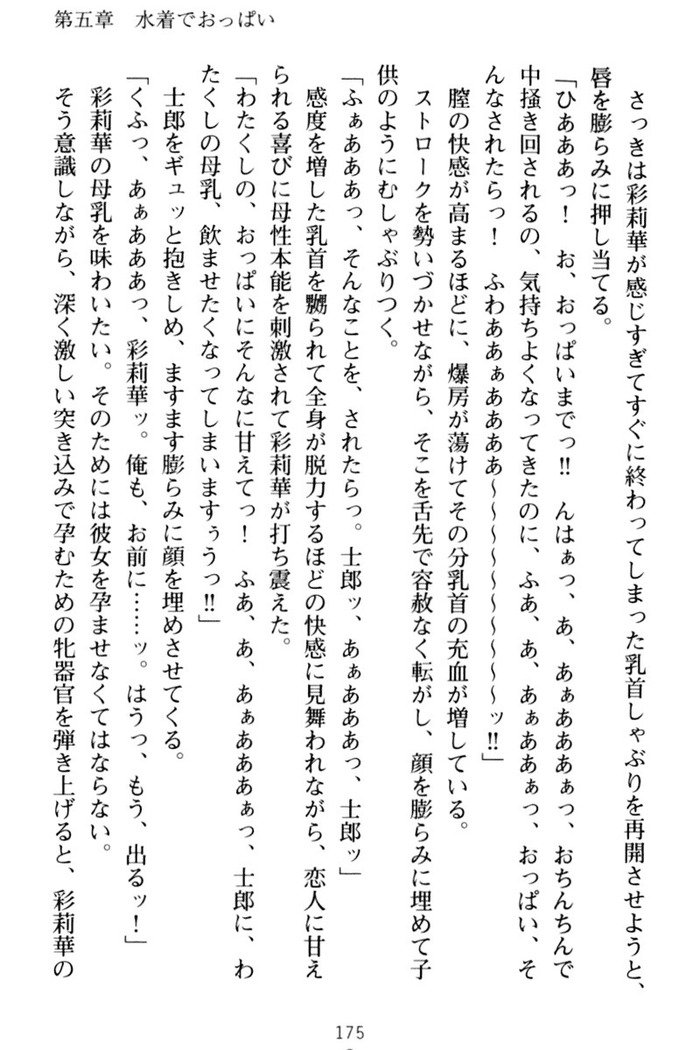 第五章　水着でおっぱい
さっきは彩莉華が感じすぎてすぐに終わってしまった乳首しゃぶりを再開させようと、
唇を膨らみに押し当てる。
「ひあああっ！　お、おっぱいまでっ!!　んはぁっ、あ、あぁあああぁっ、おちんちんで
中掻き回されるの、気持ちよくなってきたのに、ふあ、あ、あぁああぁっ、おっぱい、そ
んなされたらっ！　ふわああぁああああ～～～～～～～～～～ッ!!」
膣の快感が高まるほどに、爆房が蕩けてその分乳首の充血が増している。
ストロークを勢いづかせながら、そこを舌先で容赦なく転がし、顔を膨らみに埋めて子
供のようにむしゃぶりつく。
「ふぁああああっ、そんなことを、されたらっ。士郎ッ、あぁああああっ、士郎ッ」
感度を増した乳首を嬲られて全身が脱力するほどの快感に見舞われながら、恋人に甘え
られる喜びに母性本能を刺激されて彩莉華が打ち震えた。
「わたくしの、おっぱいにそんなに甘えてっ！　ふあ、あ、あぁあああぁっ、士郎に、わ
たくしの母乳、飲ませたくなってしまいますぅうっ!!」
士郎をギュッと抱きしめ、ますます膨らみに顔を埋めさせてくる。
「くふっ、あぁあああっ、彩莉華ッ。俺も、お前に……ッ。はうっ、もう、出るッ！」
彩莉華の母乳を味わいたい。そのためには彼女を孕ませなくてはならない。
そう意識しながら、深く激しい突き込みで孕むための牝器官を弾き上げると、彩莉華の
175